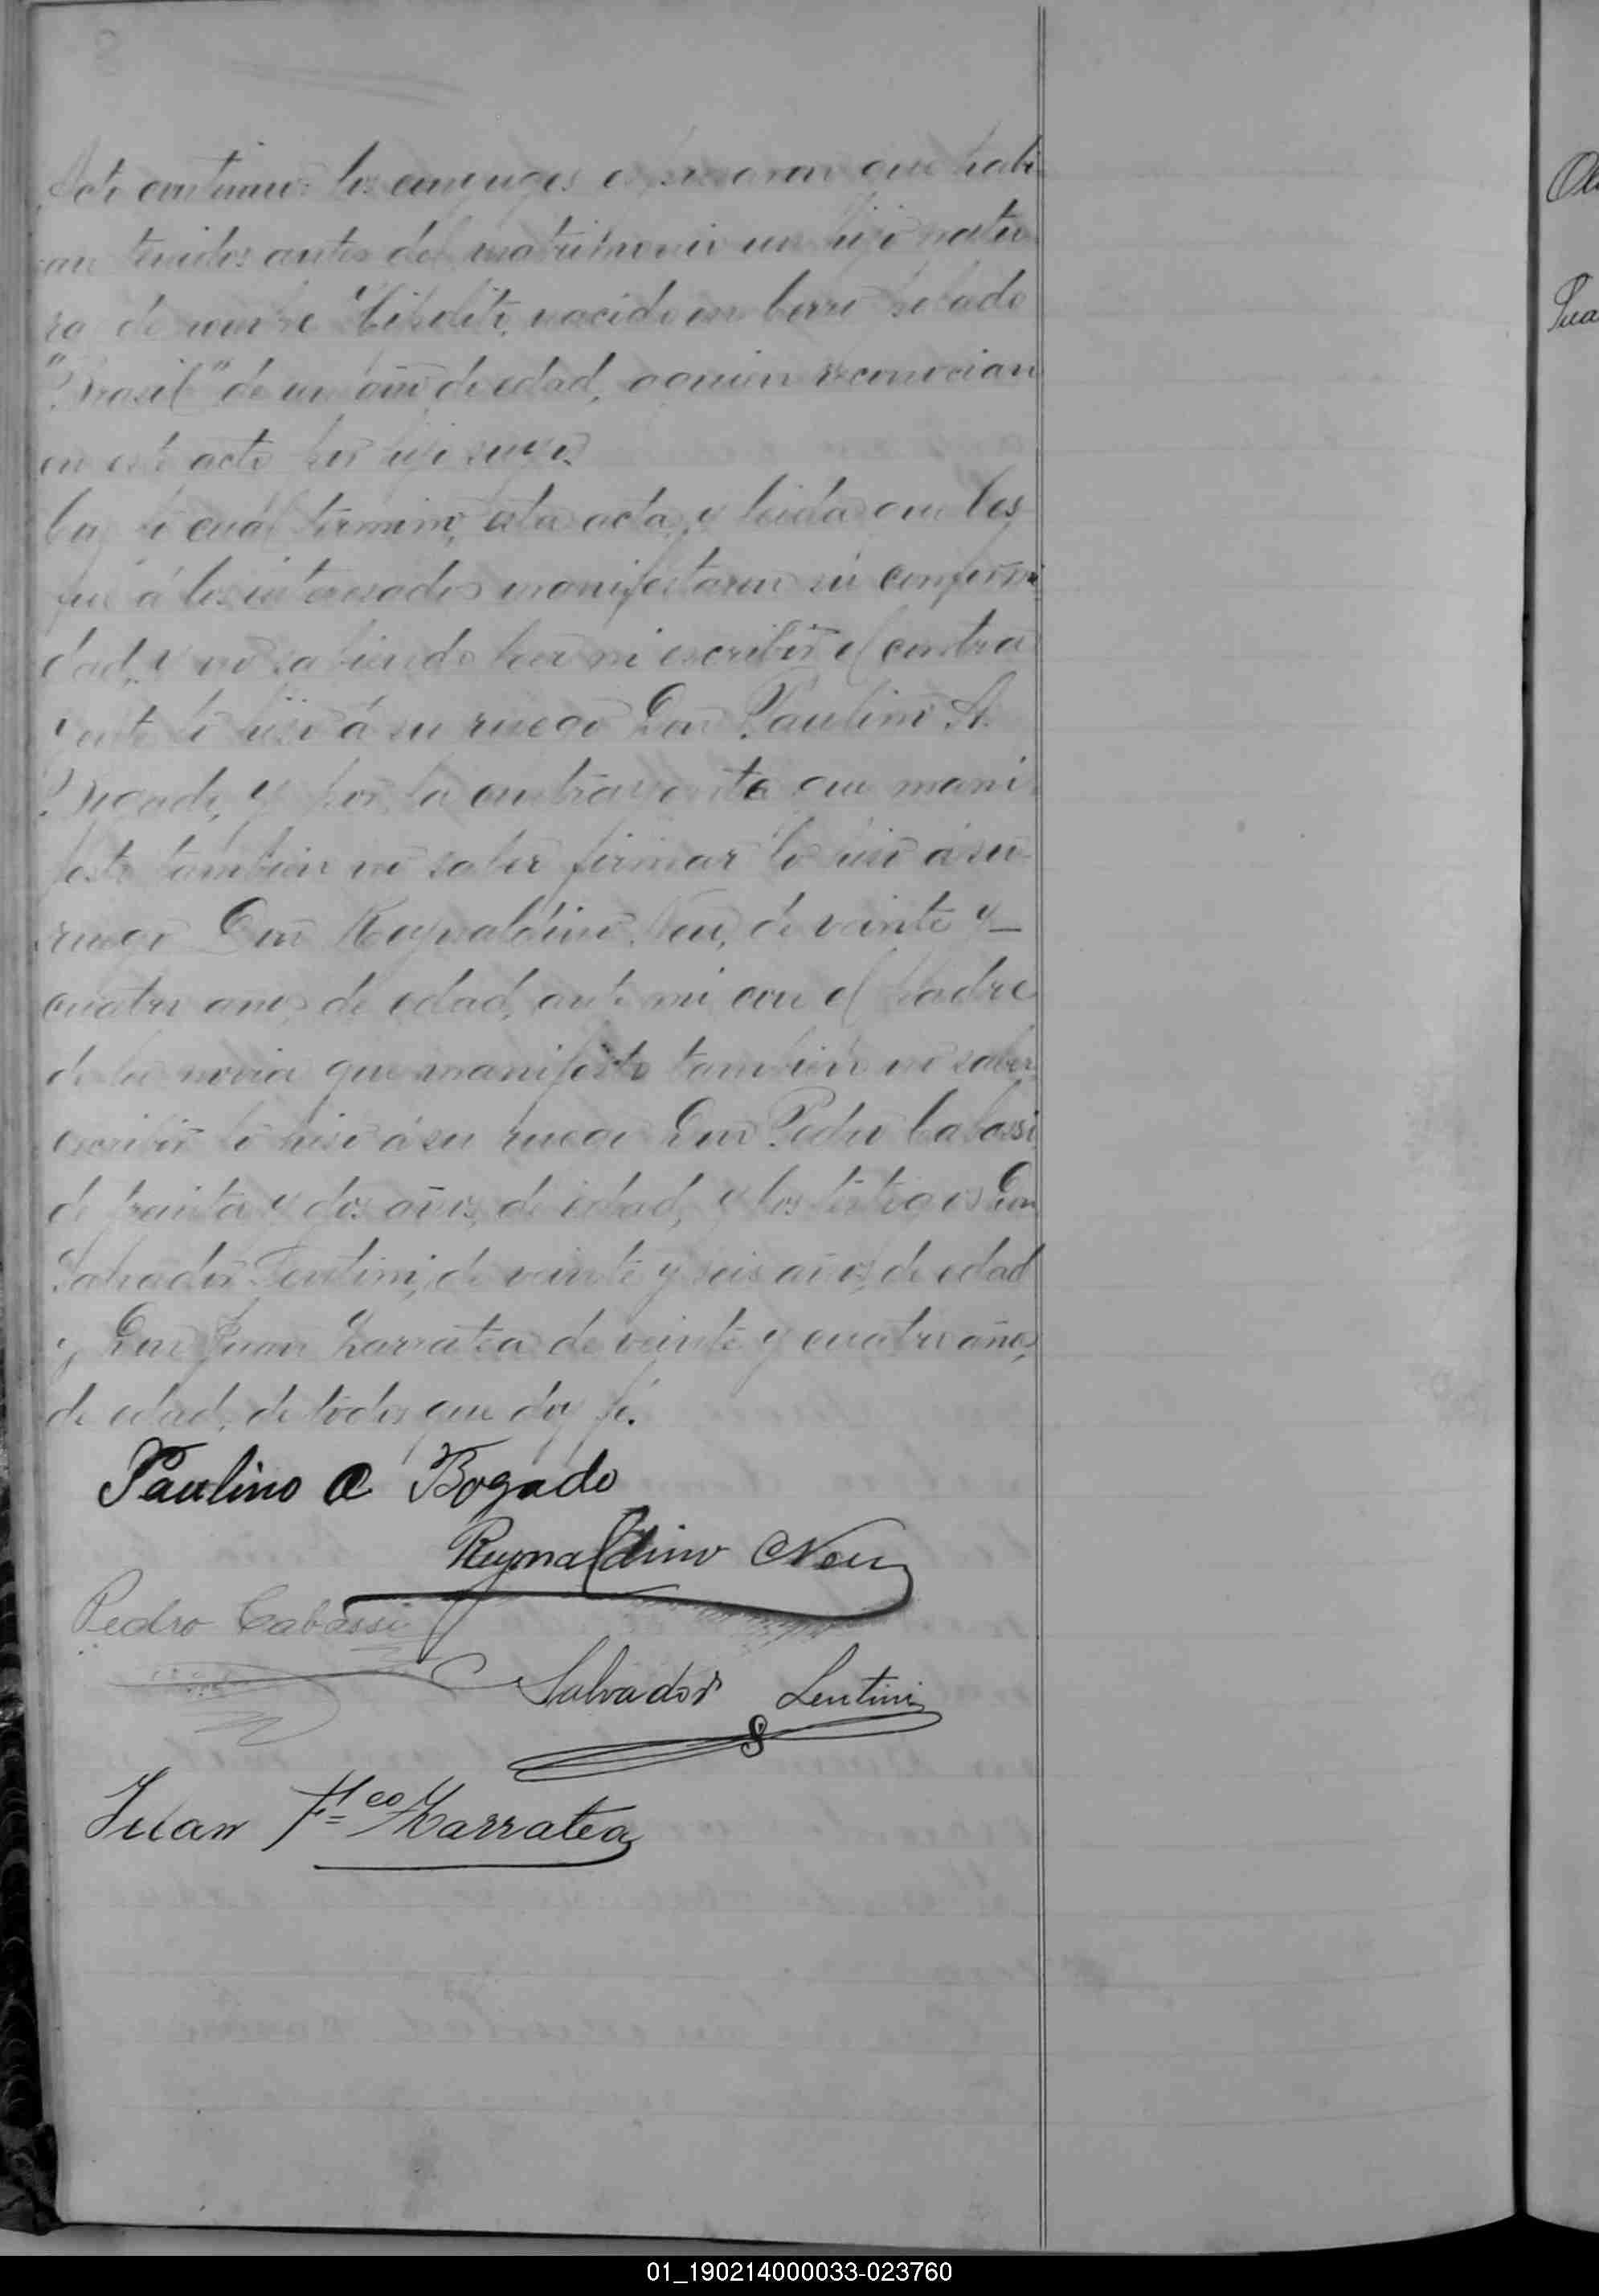 Acto continuo los conyuges espresaron que habi
an tenidos antes del matrimonio un hijo natu
ra de nombre Hipolito, nacido en Cerro Pelado
"Brasil" de un año de edad, a quien reconocian
en este acto por hijo suyo.
lo cuál termino, esta acta, y leida que les
fué á los interesados manifestaron sú conformi
dad, y no sabiendo leer ni escribir el contra
yente lo hiso á su ruego Don Paulino A.
Bogado, y por la contrayente que mani
festo tambien no saber firmar lo hiso á su
ruego Don Reynaldino Neu, de veinte y
cuatro años de edad, ante mi con el padre
de la novia que manifesto tambien no saber
escribir lo hiso á su ruego Don Pedro Cabassi
de treinta y dos años, de edad, y los testigos Don
Salvador Lentini, de veinte y seis años, de edad
y Don Juan Zarratea de veinte y cuatro años,
de edad, de todos que doy fé.
Paulino A Bogado
Reynaldino Neu
Pedro Cabassi
Salvador Lentini
Juan Fco Zarratea
01_190214000033-023760